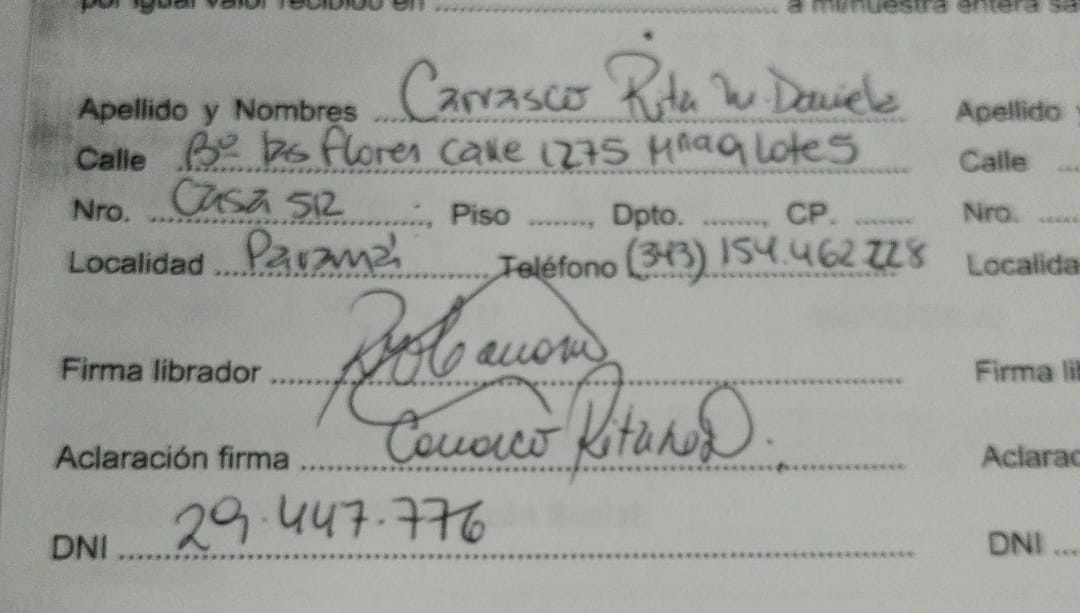 por igual valor recibido en ........ a mi/nuestra entera sa
Apellido y Nombres Carrasco Rita M. Daniela Apellido y
Calle Bº Las flores calle 1275 Mna 9 Lote 5 Calle
Nro. Casa 512, Piso ......, Dpto. ......, CP. ...... Nro.
Localidad Paraná Teléfono (343) 154.462228 Localida
Firma librador Firma lib
Aclaración firma Carrasco Rita Aclarac
DNI 29.447.776 DNI